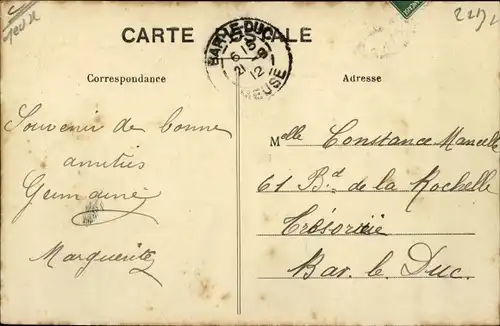 CARTE POSTALE
BAR-LE-DUC
MEUSE
Correspondance
Adresse
Souvenir de bonne
amitiés
Germaine
Marguerite
Melle Constance Mancelle
61 Bd de la Rochelle
Trésorerie
Bar. le Duc.